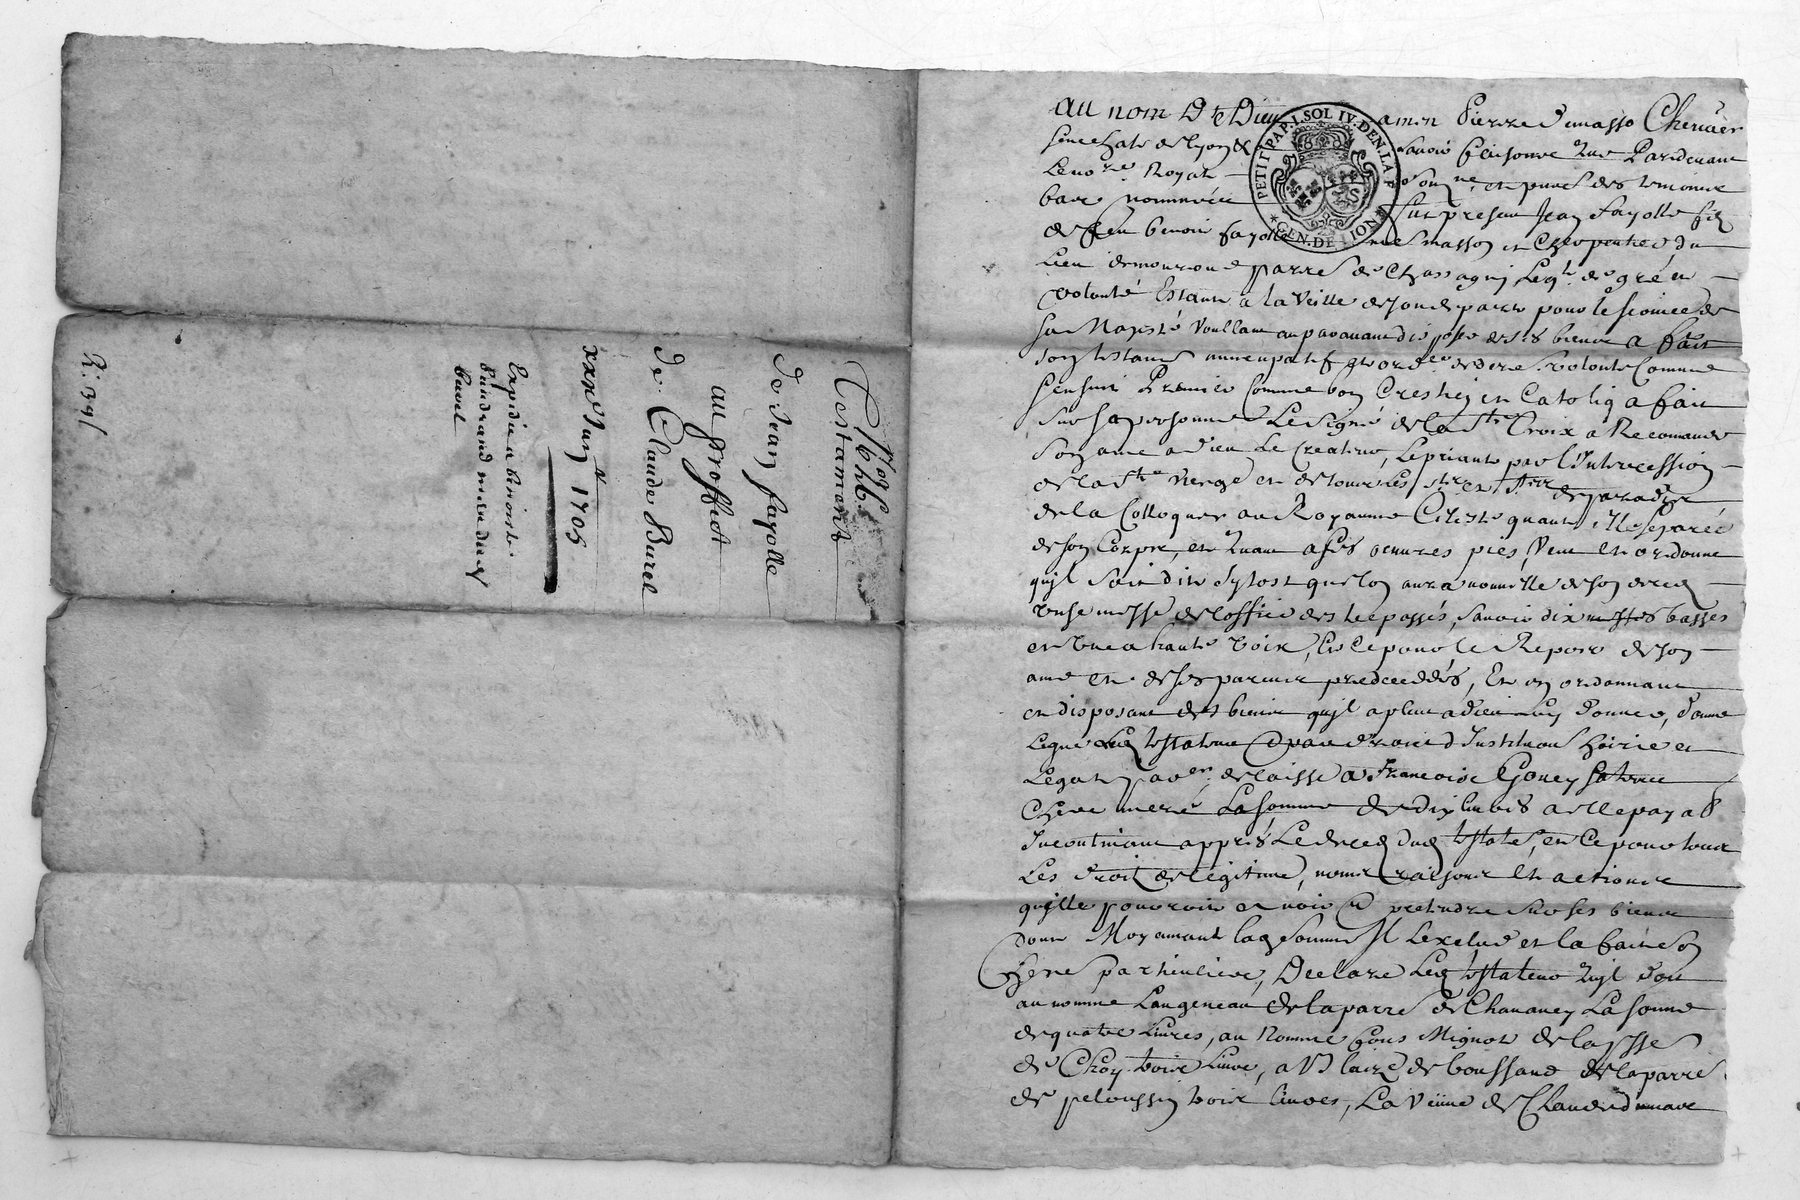 Testamant
de Jean fayolle
au proffict
de Claude Burel
xxx Jan 1705
Expedié a benoiste
burel
R: 39
PETIT PAP. 1. SOL IV. DEN. LA F
GEN. DE LION
au nom De Dieu amen Pierre Dumasso Cheualier
senechal de lyon & sauoir faisons que Pardeuant
Le no.re Royal et presence des temoins
bas nommés fut present Jean Fayolle fils
de feu benoit fayolle masson et Charpentier du
Lieu paroisse de Chassagny Leql de gré et
volonté Estant a la veille de son depart pour le seruice de
sa Majesté voullant auparauant disposer de ses biens a fait
son testament nuncupatif et ordce de dere volonté Comme
sensuit Premier Comme bon Crestien Catoliq a fait
sur sa personne Le Signe de la Ste Croix a Recomandé
son ame a Dieu Le Createur, Le priant par L'Intercession
de la Ste Vierge et de tous les Sts et Stes de paradis
de la Colloquer au Royaume Celeste quant Elle separée
de son Corps, et Quant a ses oeuures pies, Veut et ordonne
qu'il soit dit sytost que lon aura nouuelle de son deces
unse messe de loffice des trepassés, sauoir dix messes basses
et Une a haute voix, Et ce pour le Repos de son
ame et de ses parens predecedés, Et en ordonnant
et disposant des biens qu'il a pleu a dieu luy donner, donne
Legue Led testateur et par droit d'Institution hoirie et
Legat delaisse a Francoise Gouey sa tres
Chere mere La somme de dix liures a elle payable
Incontinant appres Le deces dud testateur, et Ce pour tous
Les droits de legitime, noms raisons Et actions
qu'elle pourroit auoir et pretendre sur ses biens
dont Moyennant lad somme Il L'exclud et la fait son
herre particuliere, Declare Led testateur qu'il doit
au nomme Laugeneau de la parre de Chauaney La somme
de quatre Liures, au Nommé Mignot de la psse
de Choy trois Liures, a de boussand de la parre
de peloussin trois liures, La veuue de Claude